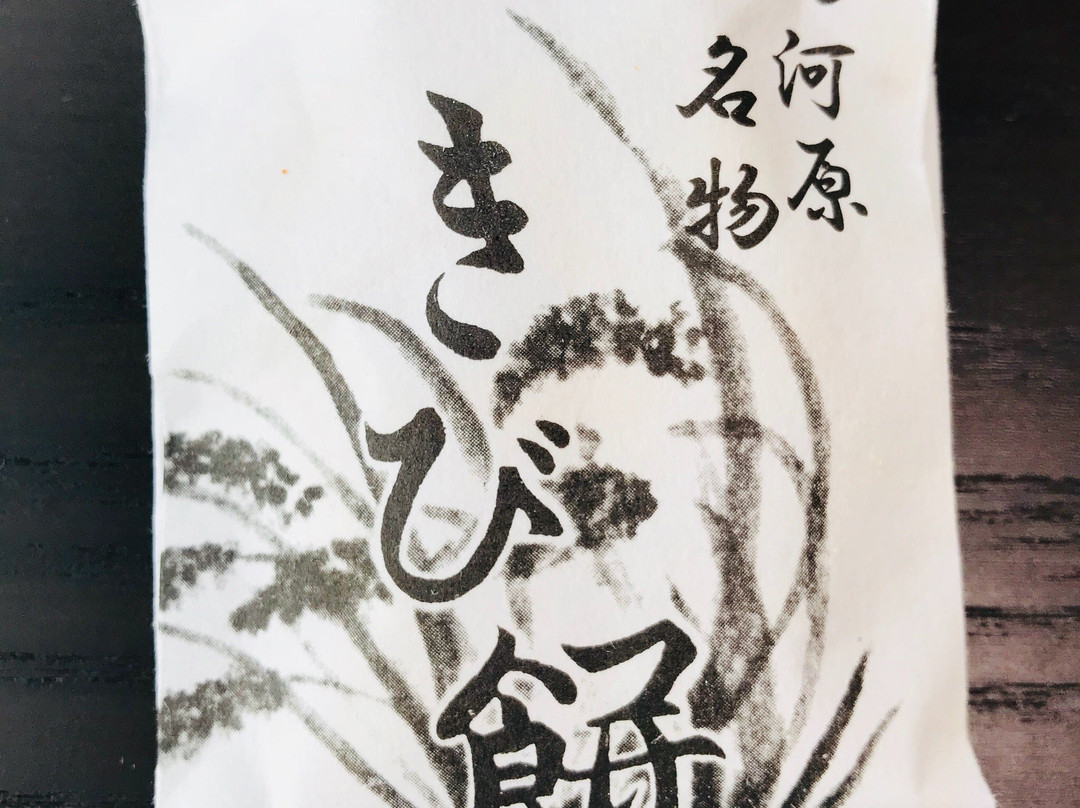 河原
名物
きび餅